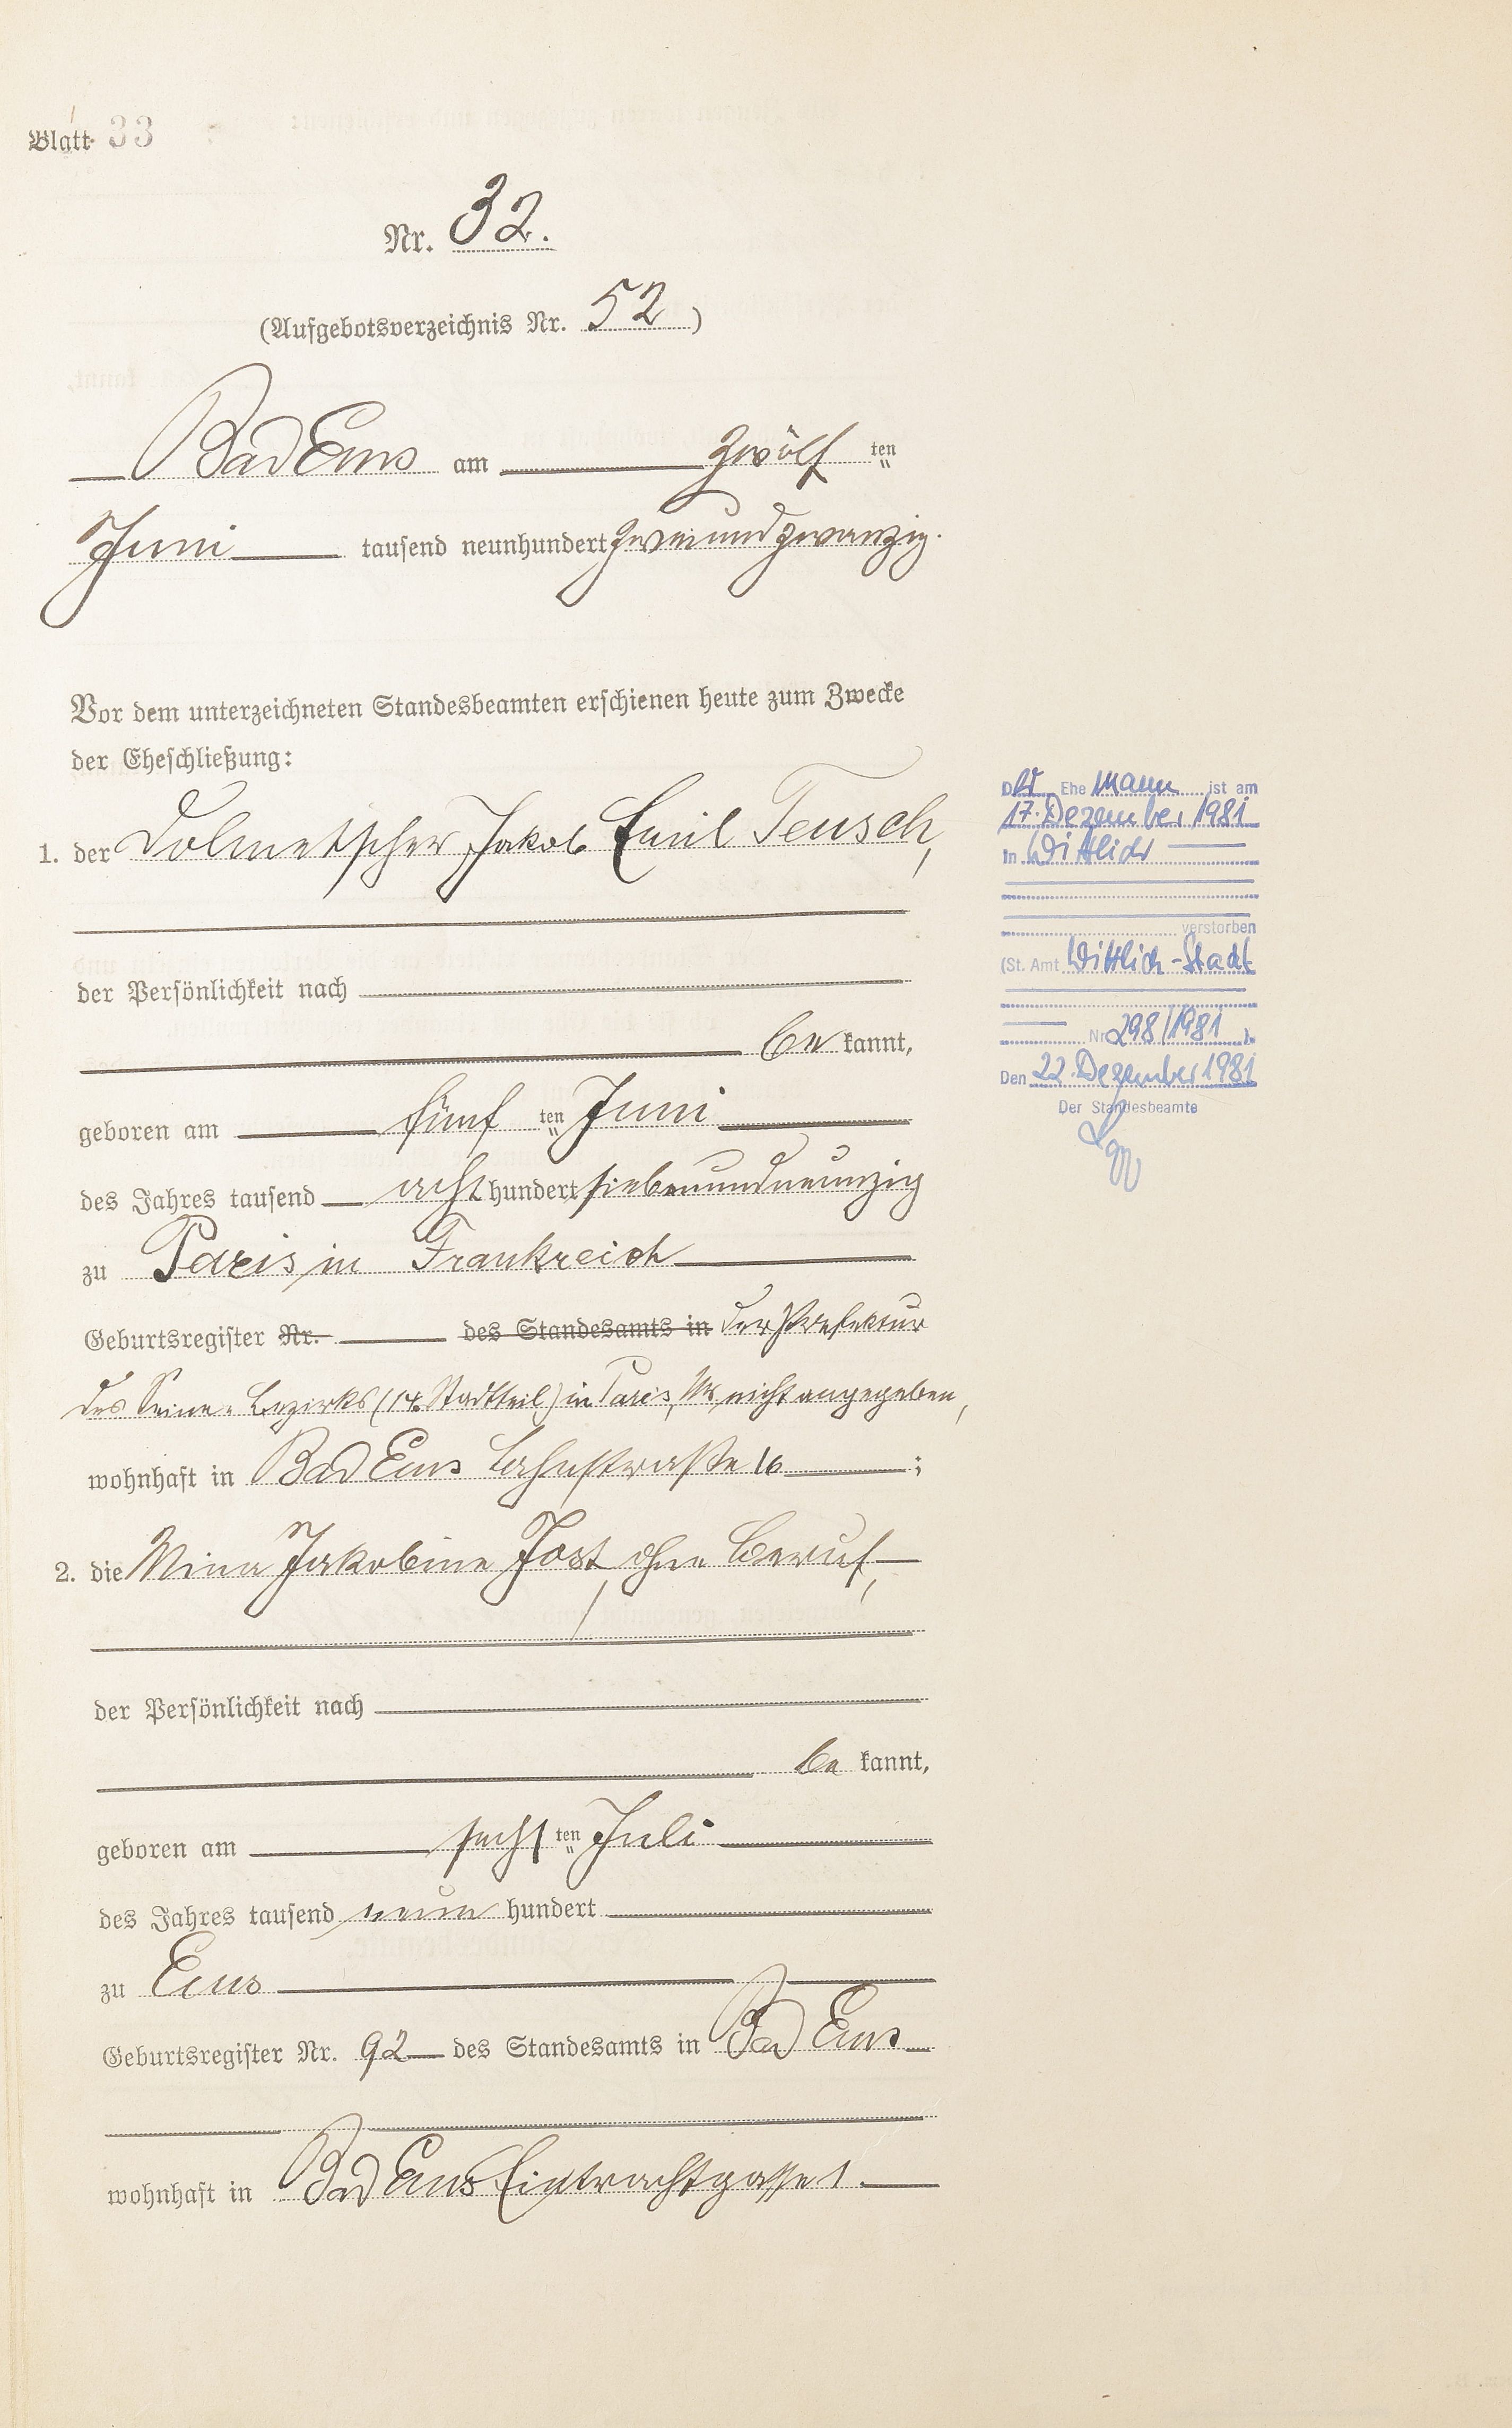 Blatt 33
Nr. 32.
(Aufgebotsverzeichnis Nr. 52)
Bad Ems am zwölf ten
Juni tausend neunhundert zweiundzwanzig.
Vor dem unterzeichneten Standesbeamten erschienen heute zum Zwecke
der Eheschließung:
1. der Dolmetscher Jakob Emil Teusch,
der Persönlichkeit nach
be kannt,
geboren am fünf ten Juni
des Jahres tausend acht hundert siebenundneunzig
zu Paris in Frankreich
Geburtsregister Nr. des Standesamts in der Präfektur
des Seine-Bezirks (14. Stadtteil) in Paris, Nr. nicht angegeben,
wohnhaft in Bad Ems Lahnstraße 16;
2. die Mina Jakobine Jost, ohne Beruf,
der Persönlichkeit nach
be kannt,
geboren am sechs ten Juli
des Jahres tausend neun hundert
zu Ems
Geburtsregister Nr. 92 des Standesamts in Bad Ems
wohnhaft in Bad Ems Eintrachtgasse 1.
Der Ehe Mann ist am
17. Dezember 1981
in Wittlich
verstorben
(St. Amt Wittlich-Stadt
Nr 298/1981 ).
Den 22. Dezember 1981
Der Standesbeamte